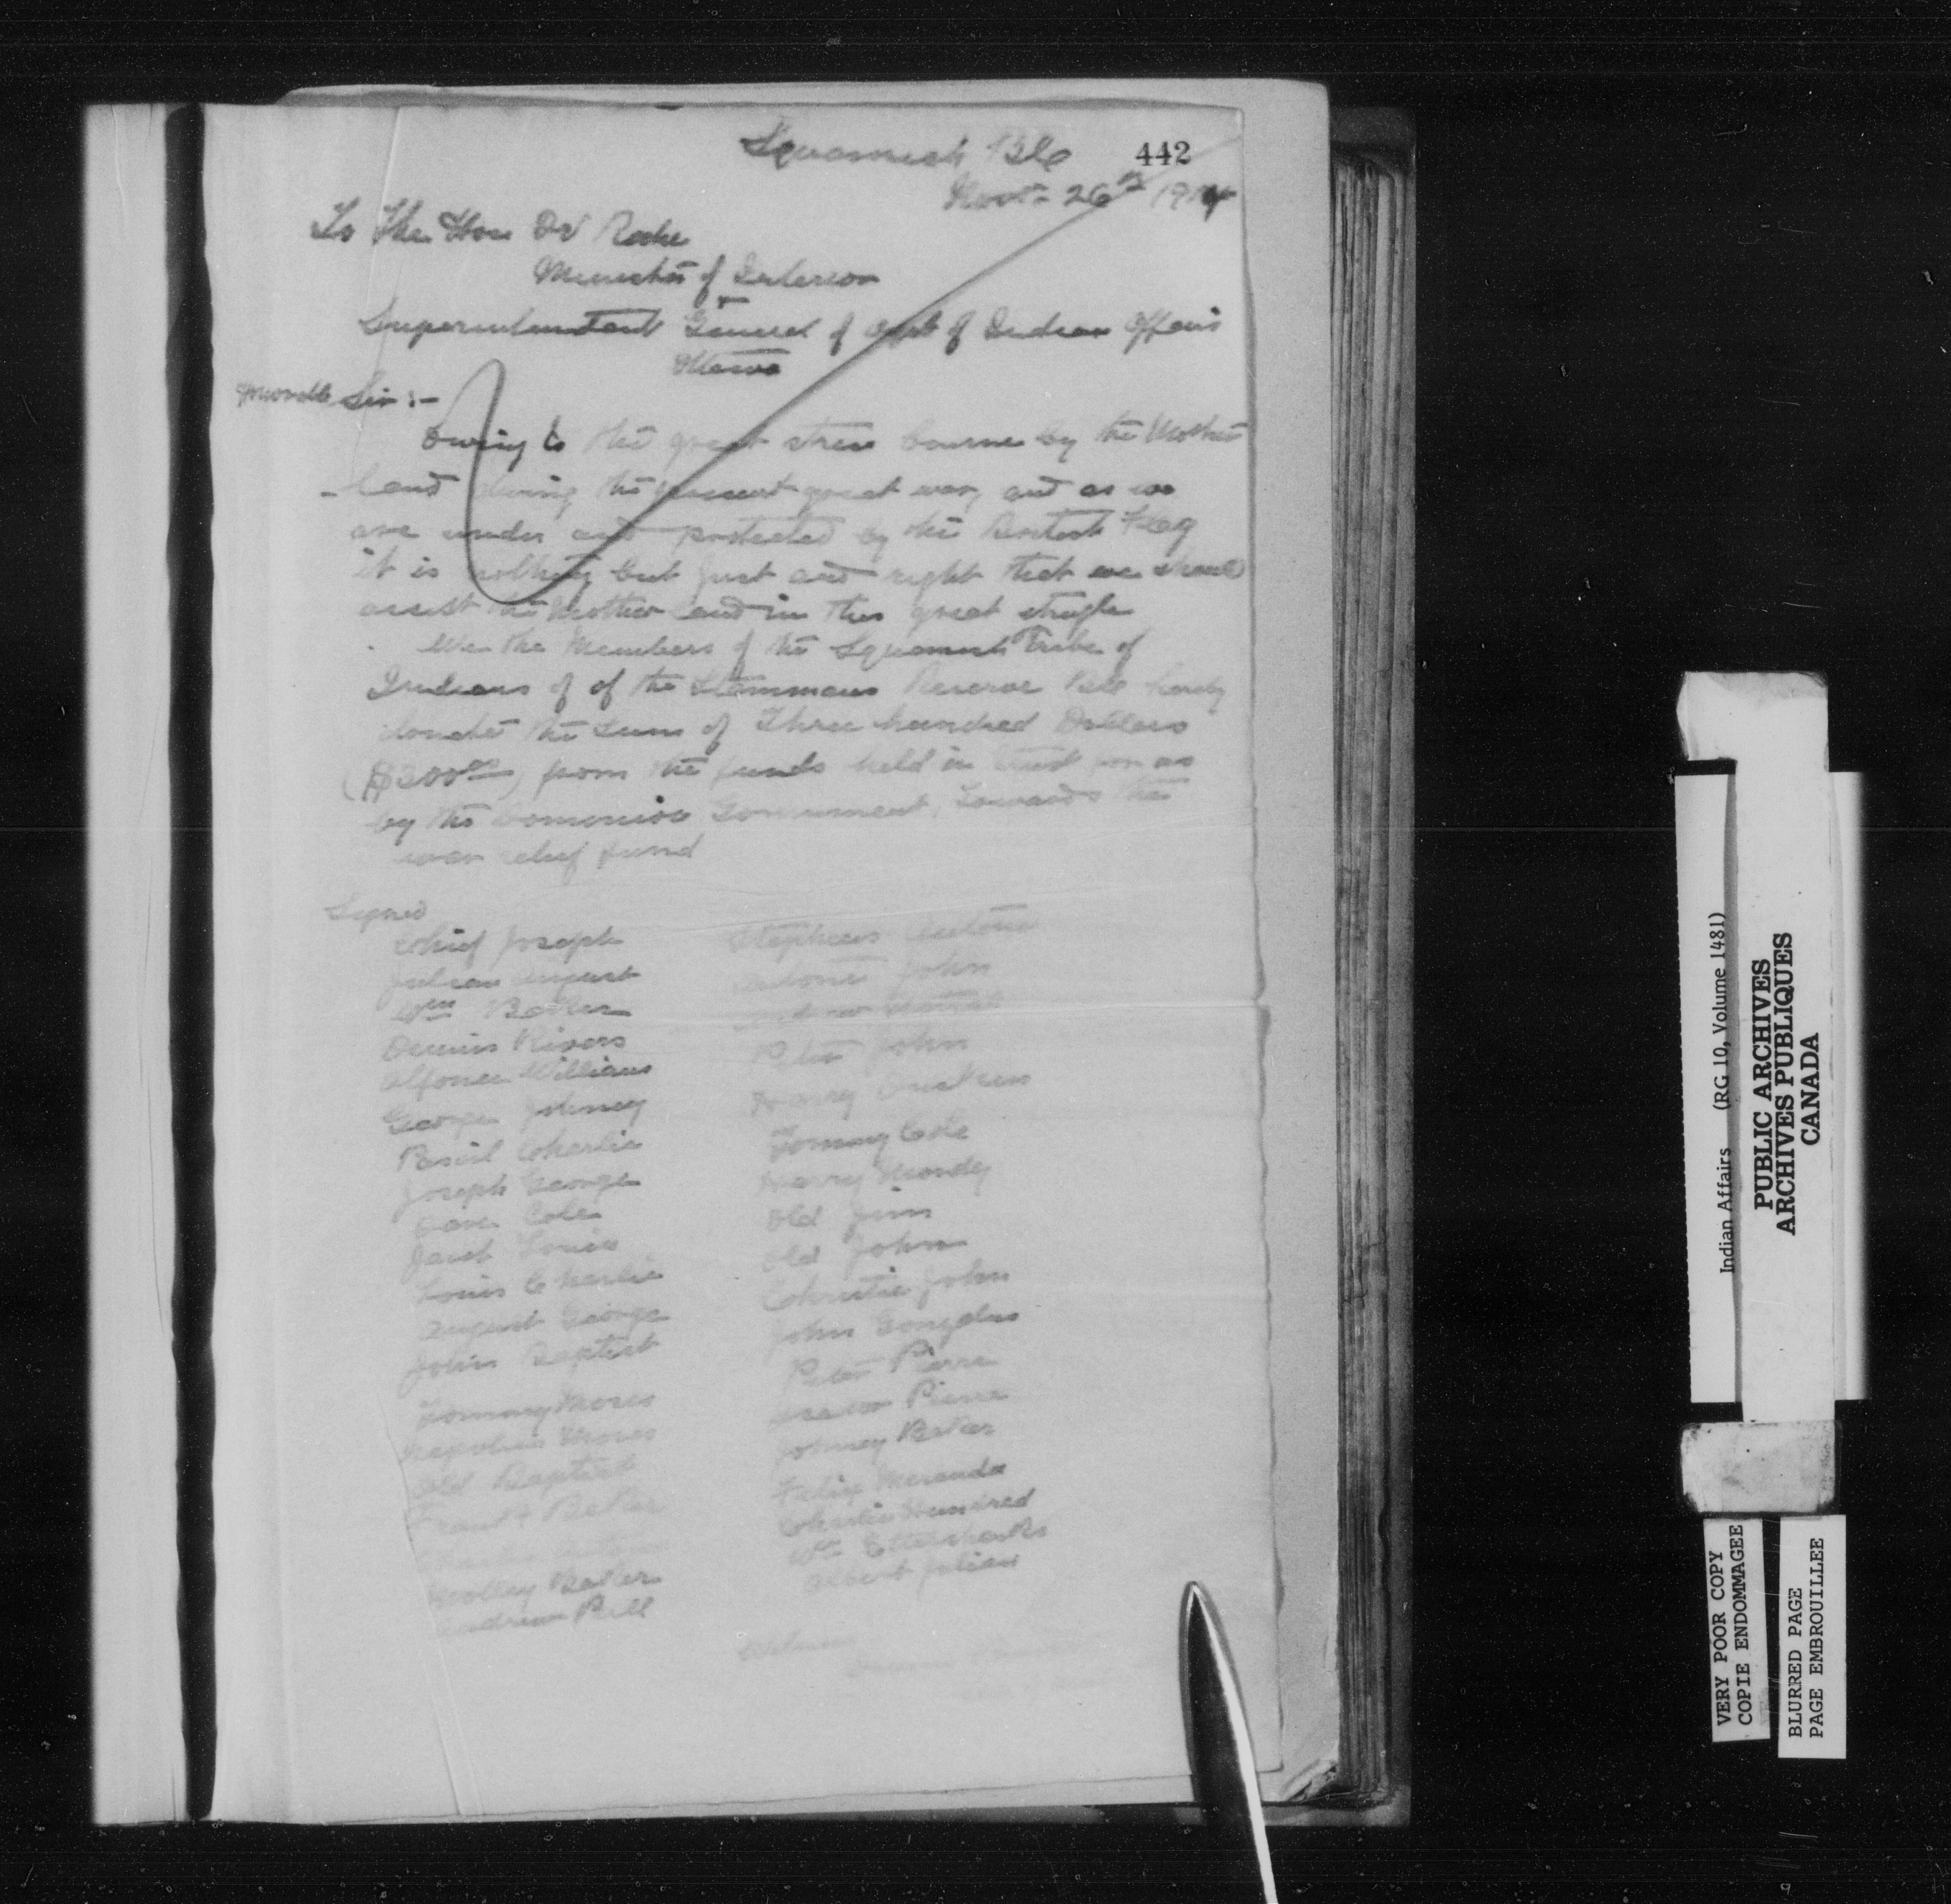 Squamish B C
442
Nov 26th 1914
To The Hon Dr Roche
Minister of Interior
Superintendant General of Dept of Indian Affairs
Ottawa
Honorable Sir :-
Owing to the great stress bourne by the Mother
-land during the present great war, and as we
are under and protected by the British Flag
it is nothing but just and right that we should
assist the Mother land in this great strugle
We the Members of the Squamish Tribe of
Indians of of the Reserve B C hereby
donate the Sum of Three hundred Dollars
($300.00) from the funds held in trust for us
by the Dominion Government, Towards the
war relief fund
Signed
Chief Joseph
Julian August
Wm Baker
Dennis Rivers
Alfonse Williams
George Johney
Basil Charlie
Joseph George
Dave Cole
Louis
Louis Charlie
August George
John Baptist
Tommy Moses
Moses
Old Baptist
Frank Baker
Woolley Baker
Andrew Bill
Stephens Antone
Antone John
Peter John
Harry
Tommy Cole
Harry Moody
Old Jim
Old John
Christie John
John Gonzalas
Peter Pierre
Pierre
Johney Baker
Felix Meranda
Charlie Hundred
Wm
Albert Julian
Witness
Indian Affairs (RG 10, Volume 1481)
PUBLIC ARCHIVES
ARCHIVES PUBLIQUES
CANADA
VERY POOR COPY
COPIE ENDOMMAGEE
BLURRED PAGE
PAGE EMBROUILLEE